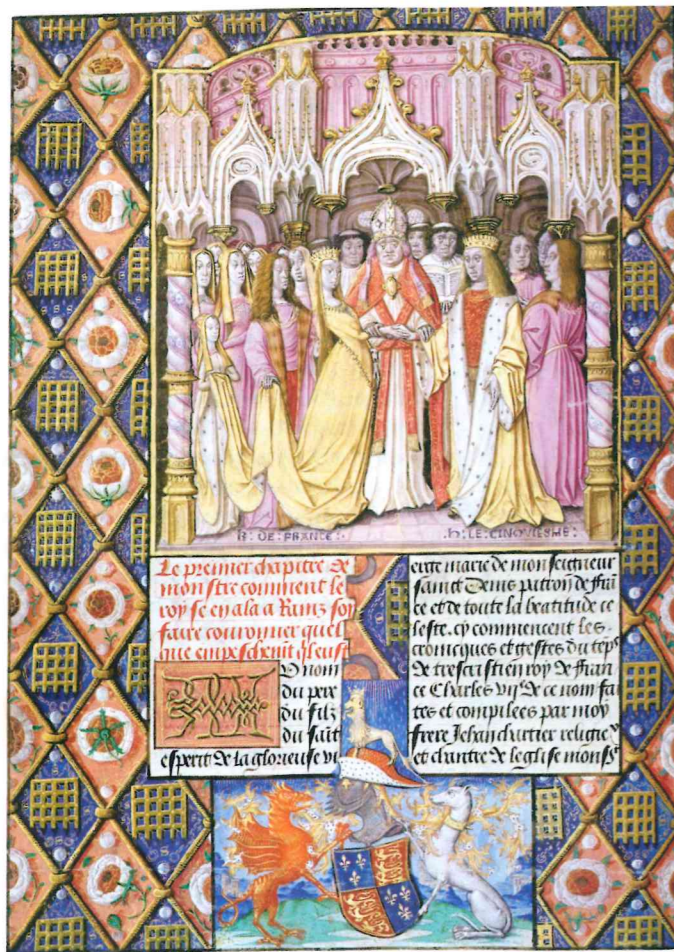 K: DE FRANCE:
: H: LE CINQVIESME:
Le premier chapitre de
monstre comment le
roy se en ala a Rainz soy
faire couronner quel
que empeschemt qleust
U nom
du pere
du filz
du saīt
esperit de la glorieuse vi
erge marie de monseigneur
sainct Denis patron de frā
ce et de toute la beatitude ce
leste. cy commencent les
cronicques et gestes du tēps
de trescristien roy de fran
ce Charles vije de ce nom fai
tes et compilees par moy
frere Jehan chartier religieux
et chantre de leglise monsr